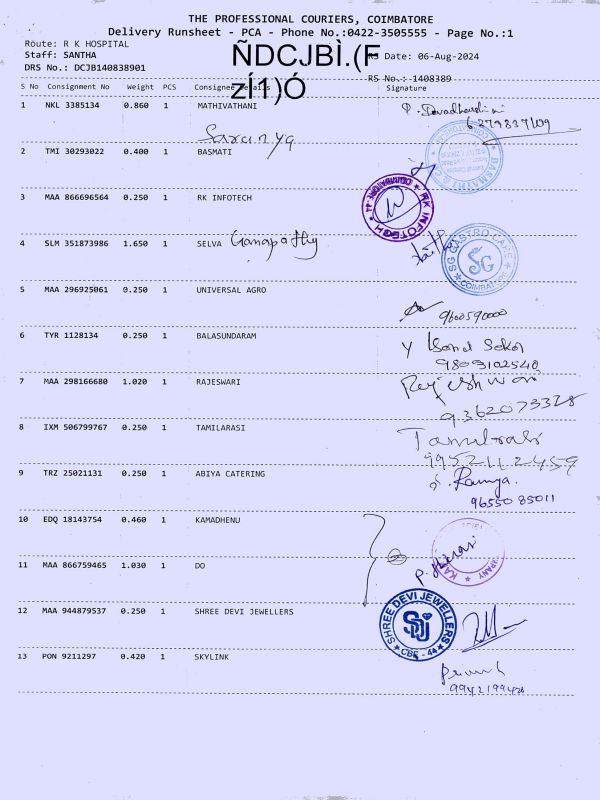 THE PROFESSIONAL COURIERS, COIMBATORE
Delivery Runsheet - PCA - Phone No.:0422-3505555 - Page No.:1
Route: R K HOSPITAL
Staff: SANTHA
RS Date: 06-Aug-2024
DRS No.: DCJB140838901
ÑDCJBÌ.(F
zÍ1)Ó
RS No.: 1408389
S No Consignment No Weight PCS Consignee Details Signature
1 NKL 3385134 0.860 1 MATHIVATHANI
Saranya
2 TMI 30293022 0.400 1 BASMATI
3 MAA 866696564 0.250 1 RK INFOTECH
RK INFOTECH
4 SLM 351873986 1.650 1 SELVA Ganapathy
SG GASTRO CARE
SG
COIMBATORE
5 MAA 296925061 0.250 1 UNIVERSAL AGRO
9600590000
6 TYR 1128134 0.250 1 BALASUNDARAM
9809102540
7 MAA 298166680 1.020 1 RAJESWARI
Rajeshwari
9362073328
8 IXM 506799767 0.250 1 TAMILARASI
Tamilrasi
9952112459
9 TRZ 25021131 0.250 1 ABIYA CATERING
Ramya
9655085011
10 EDQ 18143754 0.460 1 KAMADHENU
11 MAA 866759465 1.030 1 DO
12 MAA 944879537 0.250 1 SHREE DEVI JEWELLERS
SHREE DEVI JEWELLERS
SDJ
CBE - 44
13 PON 9211297 0.420 1 SKYLINK